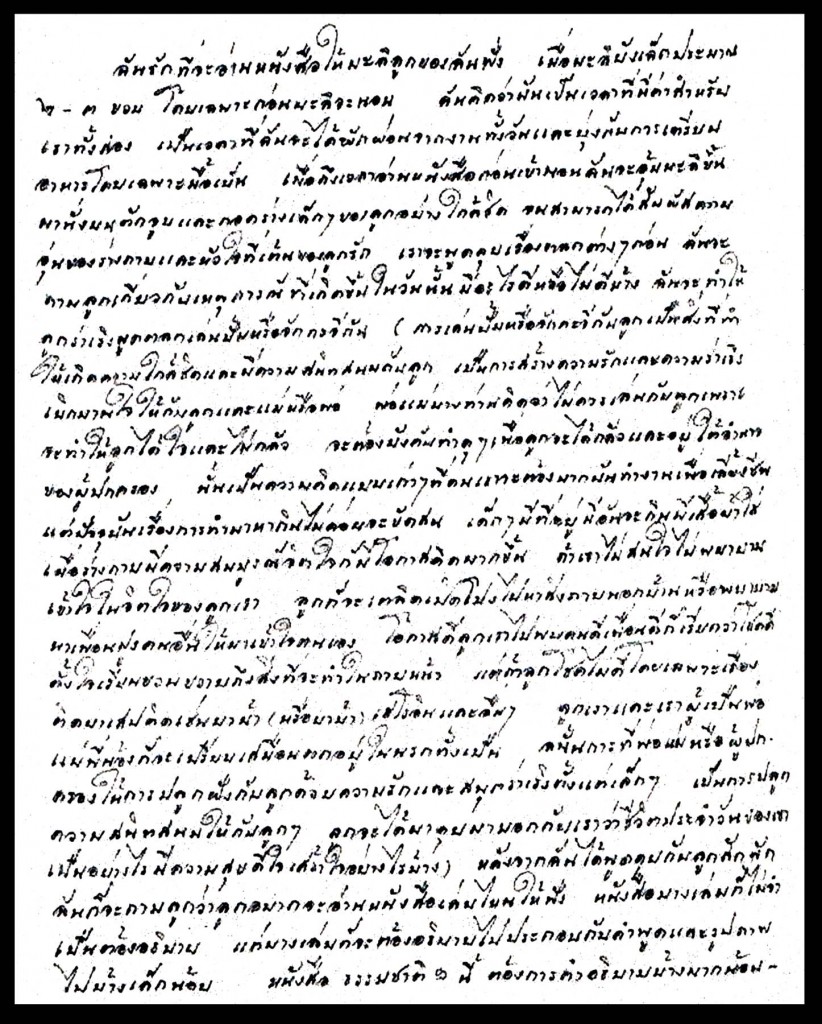 ฉันรักที่จะอ่านหนังสือให้มะลิลูกของฉันฟัง เมื่อมะลิยังเล็กประมาณ
๒ - ๓ ขวบ โดยเฉพาะก่อนมะลิจะนอน ฉันคิดว่ามันเป็นเวลาที่มีค่าสำหรับ
เราทั้งสอง เป็นเวลาที่ฉันจะได้พักผ่อนจากงานทั้งวันและยุ่งกับการเตรียม
อาหารโดยเฉพาะมื้อเย็น เมื่อถึงเวลาอ่านหนังสือก่อนเข้านอนฉันจะอุ้มมะลิขึ้น
มานั่งบนตักจูบและกอดร่างเล็กๆของลูกอย่างใกล้ชิด จนสามารถได้สัมผัสความ
อุ่นของร่างกายและหัวใจที่เต้นของลูกรัก เราจะพูดคุยเรื่องตลกต่างๆก่อน ฉันจะ
ถามลูกเกี่ยวกับเหตุการณ์ที่เกิดขึ้นในวันนั้นมีอะไรดีหรือไม่ดีบ้าง ฉันจะทำให้
ลูกร่าเริงพูดตลกเล่นปั้มหรือจักกะจี้กัน (การเล่นปั้มหรือจักกะจี้กับลูกเป็นสิ่งที่ทำ
ให้เกิดความใกล้ชิดและมีความสนิทสนมกับลูก เป็นการสร้างความรักและความร่าเริง
เบิกบานใจให้กับลูกและแม่หรือพ่อ พ่อแม่บางท่านคิดว่าไม่ควรเล่นกับลูกเพราะ
จะทำให้ลูกได้ใจและไม่กลัว จะต้องบังคับทำดุๆเพื่อลูกจะได้กลัวและอยู่ใต้อำนาจ
ของผู้ปกครอง นั่นเป็นความคิดแบบเก่าๆที่คนเราจะต้องมากบั่นทำงานเพื่อเลี้ยงชีพ
แต่ปัจจุบันเรื่องการทำมาหากินไม่ค่อยจะขัดสน เด็กๆมีที่อยู่มีอันจะกินมีเสื้อผ้าใส่
เมื่อร่างกายมีความสมบูรณ์จิตใจก็มีโอกาสคิดมากขึ้น ถ้าเราไม่สนใจไม่พยายาม
เข้าใจในจิตใจของลูกเรา ลูกก็จะเตลิดเปิดโปงไปหาสิ่งภายนอกบ้านหรือพยายาม
หาเพื่อนฝูงคนอื่นให้มาเข้าใจตนเอง โอกาสดีลูกเราไปพบคนดีเพื่อนดีก็เรียกว่าโชคดี
ตั้งใจเรียนขวนขวายถึงสิ่งที่จะทำในภายหน้า แต่ถ้าลูกโชคไม่ดีโดยเฉพาะเรื่อง
ติดยาเสปติดเช่นยาม้า (หรือยาบ้า) เฮโรอีนและอื่นๆ ลูกเราและเราผู้เป็นพ่อ
แม่พี่น้องก็จะเปรียบเสมือนตกอยู่ในนรกทั้งเป็น ฉนั้นการที่พ่อแม่หรือผู้ปก-
ครองให้การปลูกฝังกับลูกด้วยความรักและสนุกร่าเริงตั้งแต่เด็กๆ เป็นการปลูก
ความสนิทสนมให้กับลูกๆ ลูกจะได้มาคุยมาบอกกับเราว่าชีวิตประจำวันของเขา
เป็นอย่างไรมีความสุขดีใจเศร้าใจอย่างไรบ้าง) หลังจากฉันได้พูดคุยกับลูกสักพัก
ฉันก็จะถามลูกว่าลูกอยากจะอ่านหนังสือเล่มไหนให้ฟัง หนังสือบางเล่มก็ไม่จำ
เป็นต้องอธิบาย แต่บางเล่มก็จะต้องอธิบายไปประกอบกับคำพูดและรูปภาพ
ไปบ้างเล็กน้อย หนังสือ ธรรมชาติ ๒ นี้ ต้องการคำอธิบายบ้างมากน้อย-